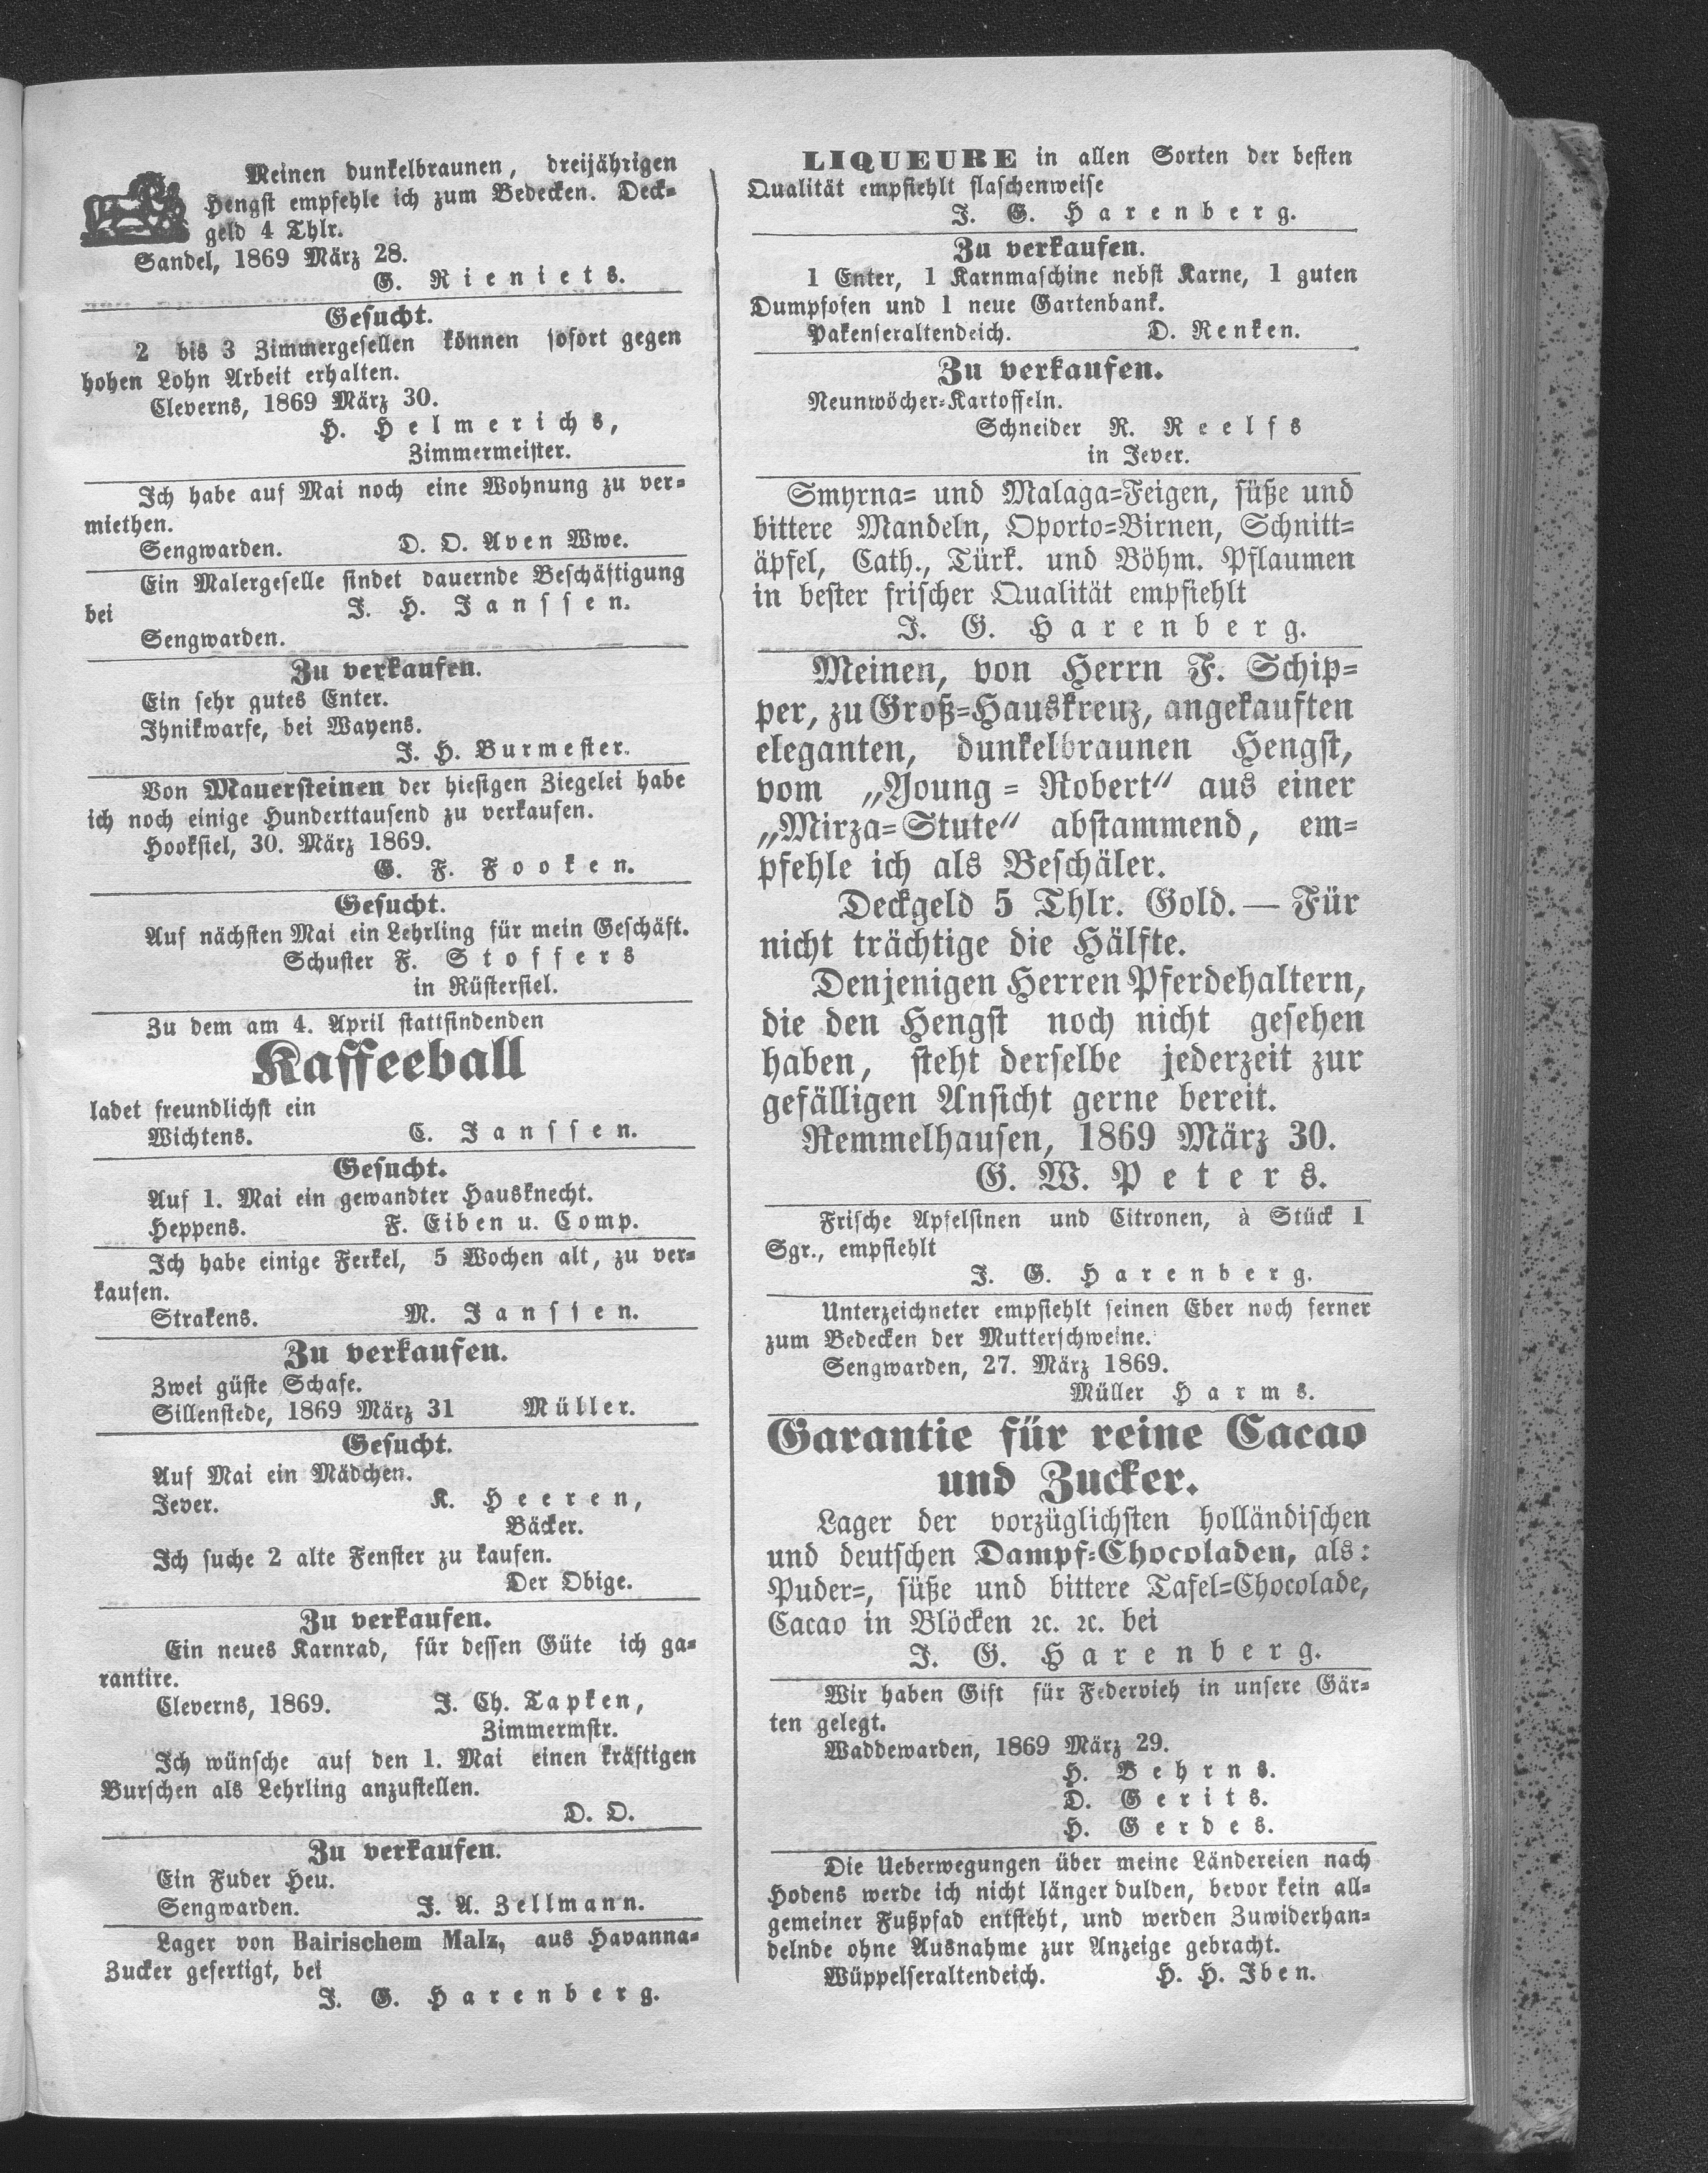 Meinen dunkelbraunen, dreijährigen
Hengst empfehle ich zum Bedecken. Deck-
geld 4 Thlr.
Sandel, 1869 März 28.
G. Rieniets.
Gesucht.
2 bis 3 Zimmergesellen können sofort gegen
hohen Lohn Arbeit erhalten.
Cleverns, 1869 März 30.
H. Helmerichs,
Zimmermeister.
Ich habe auf Mai noch eine Wohnung zu ver-
miethen.
Sengwarden. D. O. Aven Wwe.
Ein Malergeselle findet dauernde Beschäftigung
bei J. H. Janssen.
Sengwarden.
Zu verkaufen.
Ein sehr gutes Enter.
Ihnikwarfe, bei Wayens.
J. H. Burmester.
Von Mauersteinen der hiesigen Ziegelei habe
ich noch einige Hunderttausend zu verkaufen.
Hooksiel, 30. März 1869.
G. F. Fooken.
Gesucht.
Auf nächsten Mai ein Lehrling für mein Geschäft.
Schuster F. Stoffers
in Rüstersiel.
Zu dem am 4. April stattfindenden
Kaffeeball
ladet freundlichst ein
Wichtens. C. Janssen.
Gesucht.
Auf 1. Mai ein gewandter Hausknecht.
Heppens. F. Eiben u. Comp.
Ich habe einige Ferkel, 5 Wochen alt, zu ver-
kaufen.
Strakens. M. Janssen.
Zu verkaufen.
Zwei güste Schafe.
Sillenstede, 1869 März 31 Müller.
Gesucht.
Auf Mai ein Mädchen.
Jever. K. Heeren,
Bäcker.
Ich suche 2 alte Fenster zu kaufen.
Der Obige.
Zu verkaufen.
Ein neues Karnrad, für dessen Güte ich ga-
rantire.
Cleverns, 1869. J. Ch. Tapken,
Zimmermstr.
Ich wünsche auf den 1. Mai einen kräftigen
Burschen als Lehrling anzustellen.
D. O.
Zu verkaufen.
Ein Fuder Heu.
Sengwarden. J. A. Zellmann.
Lager von Bairischem Malz, aus Havanna-
Zucker gefertigt, bei
J. G. Harenberg.
LIQUEURE in allen Sorten der besten
Qualität empfiehlt flaschenweise
J. G. Harenberg.
Zu verkaufen.
1 Enter, 1 Karnmaschine nebst Karne, 1 guten
Dumpfofen und 1 neue Gartenbank.
Pakenseraltendeich. D. Renken.
Zu verkaufen.
Neunwöcher-Kartoffeln.
Schneider R. Reelfs
in Jever.
Smyrna- und Malaga-Feigen, süße und
bittere Mandeln, Oporto-Birnen, Schnitt-
äpfel, Cath., Türk. und Böhm. Pflaumen
in bester frischer Qualität empfiehlt
J. G. Harenberg.
Meinen, von Herrn F. Schip-
per, zu Groß-Hauskreuz, angekauften
eleganten, dunkelbraunen Hengst,
vom „Young-Robert“ aus einer
„Mirza-Stute“ abstammend, em-
pfehle ich als Beschäler.
Deckgeld 5 Thlr. Gold. — Für
nicht trächtige die Hälfte.
Denjenigen Herren Pferdehaltern,
die den Hengst noch nicht gesehen
haben, steht derselbe jederzeit zur
gefälligen Ansicht gerne bereit.
Remmelhausen, 1869 März 30.
G. W. Peters.
Frische Apfelsinen und Citronen, à Stück 1
Sgr., empfiehlt
J. G. Harenberg.
Unterzeichneter empfiehlt seinen Eber noch ferner
zum Bedecken der Mutterschweine.
Sengwarden, 27. März 1869.
Müller Harms.
Garantie für reine Cacao
und Zucker.
Lager der vorzüglichsten holländischen
und deutschen Dampf-Chocoladen, als:
Puder-, süße und bittere Tafel-Chocolade,
Cacao in Blöcken ꝛc. ꝛc. bei
J. G. Harenberg.
Wir haben Gift für Federvieh in unsere Gär-
ten gelegt.
Waddewarden, 1869 März 29.
H. Behrns.
D. Gerits.
H. Gerdes.
Die Ueberwegungen über meine Ländereien nach
Hodens werde ich nicht länger dulden, bevor kein all-
gemeiner Fußpfad entsteht, und werden Zuwiderhan-
delnde ohne Ausnahme zur Anzeige gebracht.
Wüppelseraltendeich. H. H. Iben.